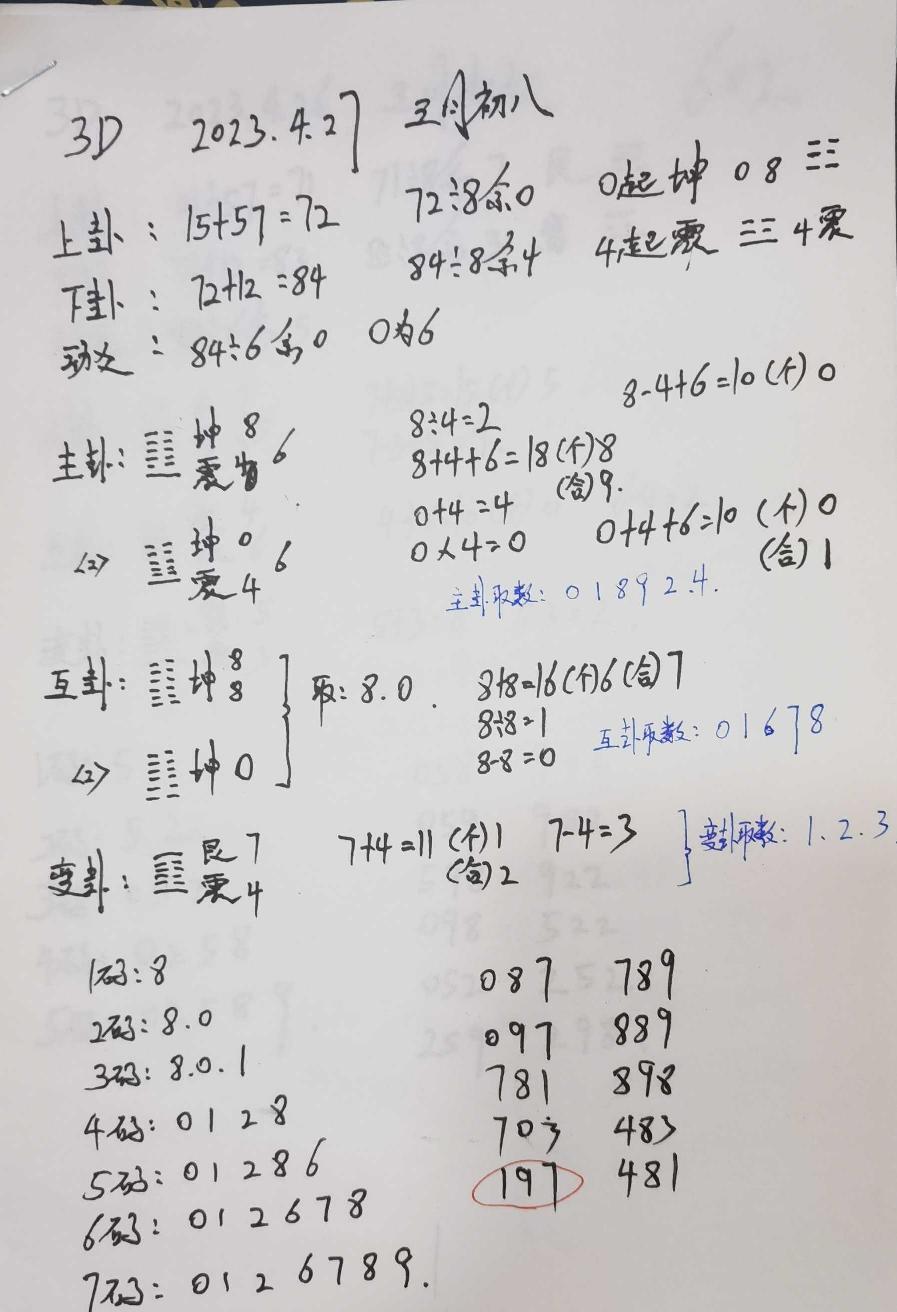 3D 2023.4.27 三月初八
上卦: 15+57=72 72÷8余0 0起坤 0 8 ☷
下卦: 72+12=84 84÷8余4 4起震 ☳ 4震
动爻: 84÷6余0 0为6
主卦: 坤 8 6
震
8÷4=2 8-4+6=10(个)0
8+4+6=18(个)8
(合)9.
<2> 坤 0 6
震 4
0+4=4 0+4+6=10 (个)0
0×4=0 (合)1
主卦取数: 0 1 8 9 2.4.
互卦: 坤 8
8
取: 8.0. 8+8=16(个)6(合)7
8÷8=1 互卦取数: 0 1 6 7 8
<2> 坤 0 8-8=0
变卦: 艮 7
震 4
7+4=11 (个)1 7-4=3 变卦取数: 1.2.3
(合)2
1码: 8
2码: 8.0
3码: 8.0.1
4码: 0 1 2 8
5码: 0 1 2 8 6
6码: 0 1 2 6 7 8
7码: 0 1 2 6 7 8 9.
087 789
097 889
781 898
703 483
197 481